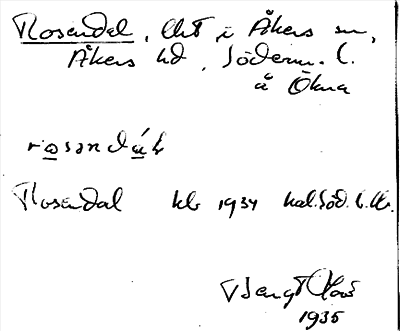 Rosendal, lht i Åkers sn,
Åkers hd, Söderm. l.
å Ökna
rosendál
Rosendal hb 1934 kal. Söd. l. lk.
Bengt
1935